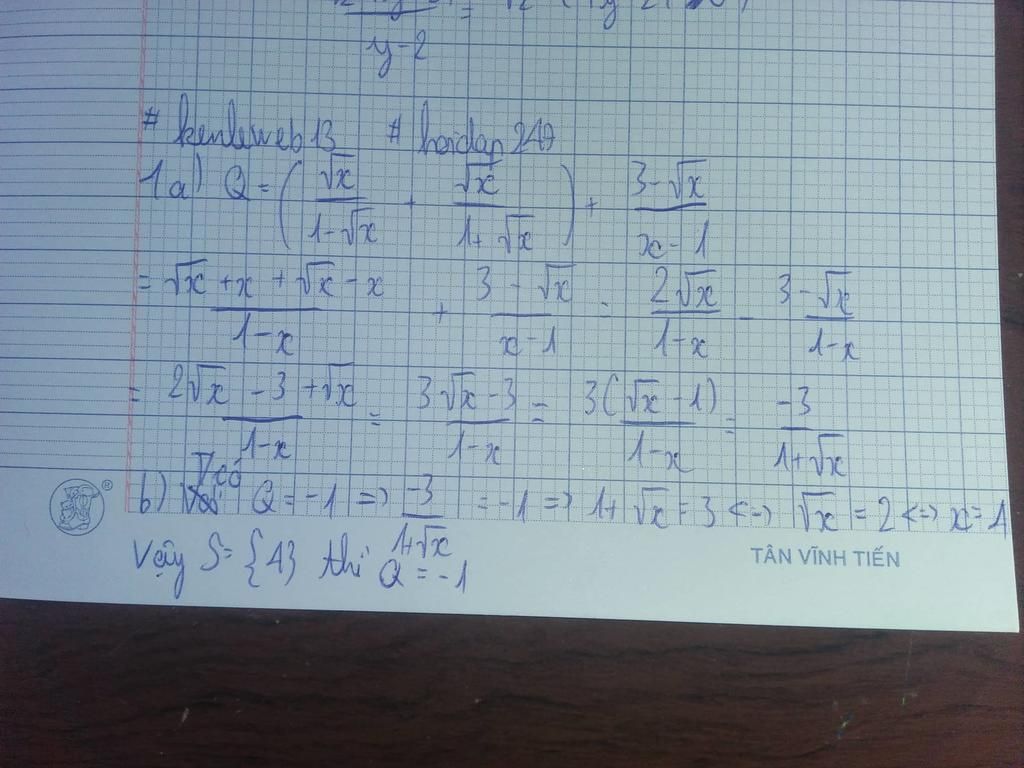 y-2
# kenleweb13 # hoidap247
1a) Q = (√x/(1-√x) + √x/(1+√x)) + (3-√x)/(x-1)
= (√x + x + √x - x)/(1-x) + (3-√x)/(x-1) = 2√x/(1-x) - (3-√x)/(1-x)
= (2√x - 3 + √x)/(1-x) = (3√x-3)/(1-x) = 3(√x-1)/(1-x) = -3/(1+√x)
b) Tcó Q = -1 => -3/(1+√x) = -1 => 1+√x = 3 <=> √x = 2 <=> x = 4
Vậy S = {4} thì Q = -1
TÂN VĨNH TIẾN
®